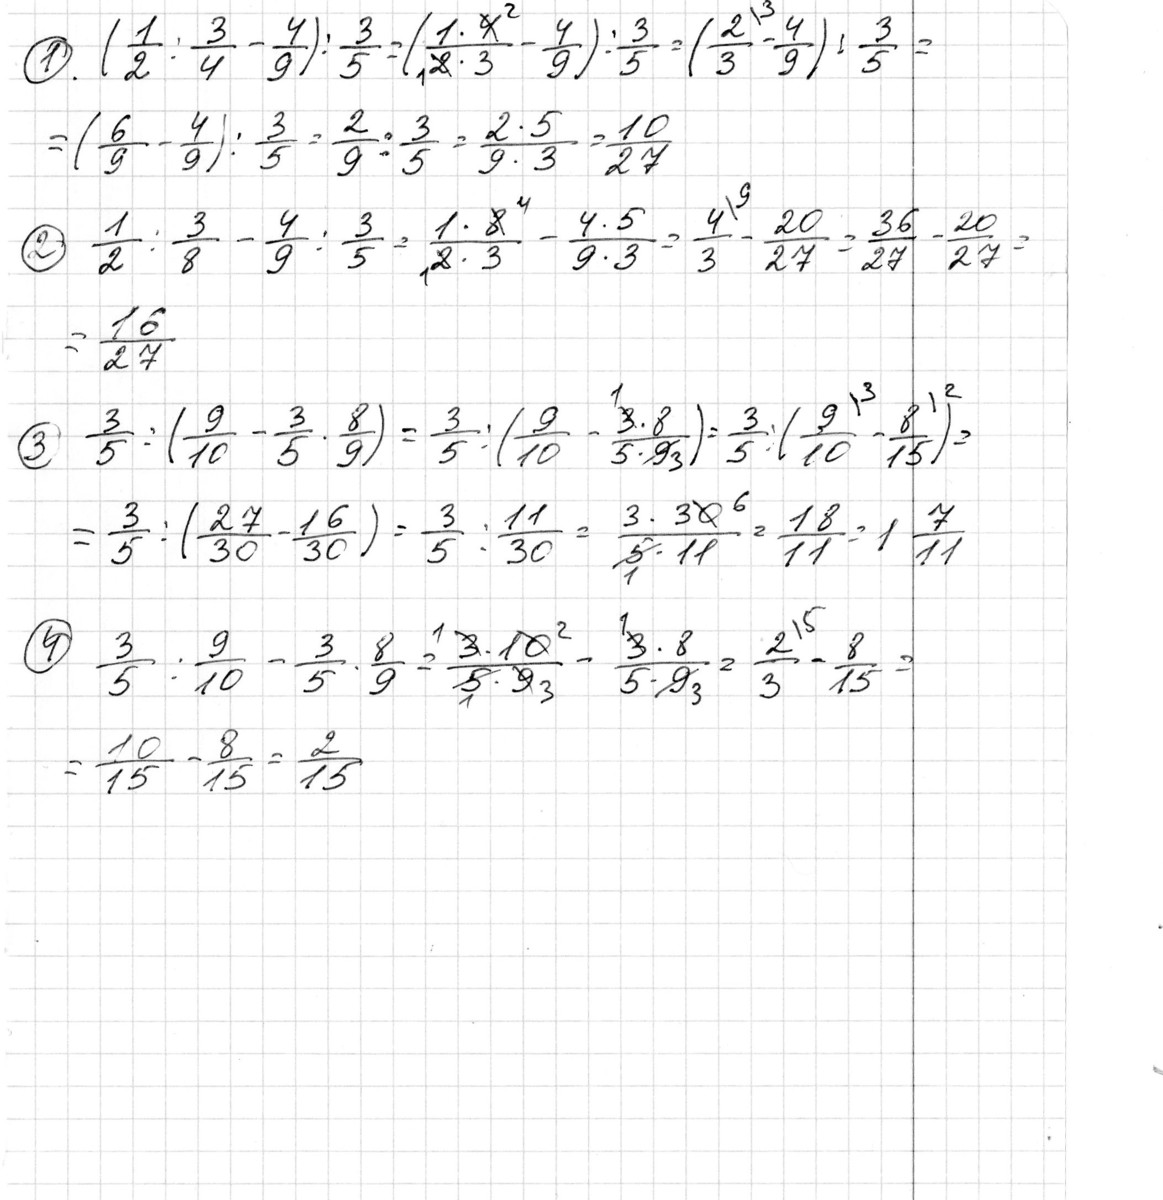 1. (1/2 : 3/4 - 4/9) : 3/5 = (1·4²/₁2·3 - 4/9) : 3/5 = (2\³/3 - 4/9) : 3/5 =
= (6/9 - 4/9) : 3/5 = 2/9 : 3/5 = 2·5/9·3 = 10/27
2 1/2 : 3/8 - 4/9 : 3/5 = 1·8⁴/₁2·3 - 4·5/9·3 = 4\⁹/3 - 20/27 = 36/27 - 20/27 =
= 16/27
3 3/5 : (9/10 - 3/5 · 8/9) = 3/5 : (9/10 - ¹3·8/5·9₃) = 3/5 : (9\³/10 - 8\²/15) =
= 3/5 : (27/30 - 16/30) = 3/5 : 11/30 = 3·30⁶/5₁·11 = 18/11 = 1 7/11
4 3/5 : 9/10 - 3/5 · 8/9 = ¹3·10²/5₁·9₃ - ¹3·8/5·9₃ = 2\⁵/3 - 8/15 =
= 10/15 - 8/15 = 2/15